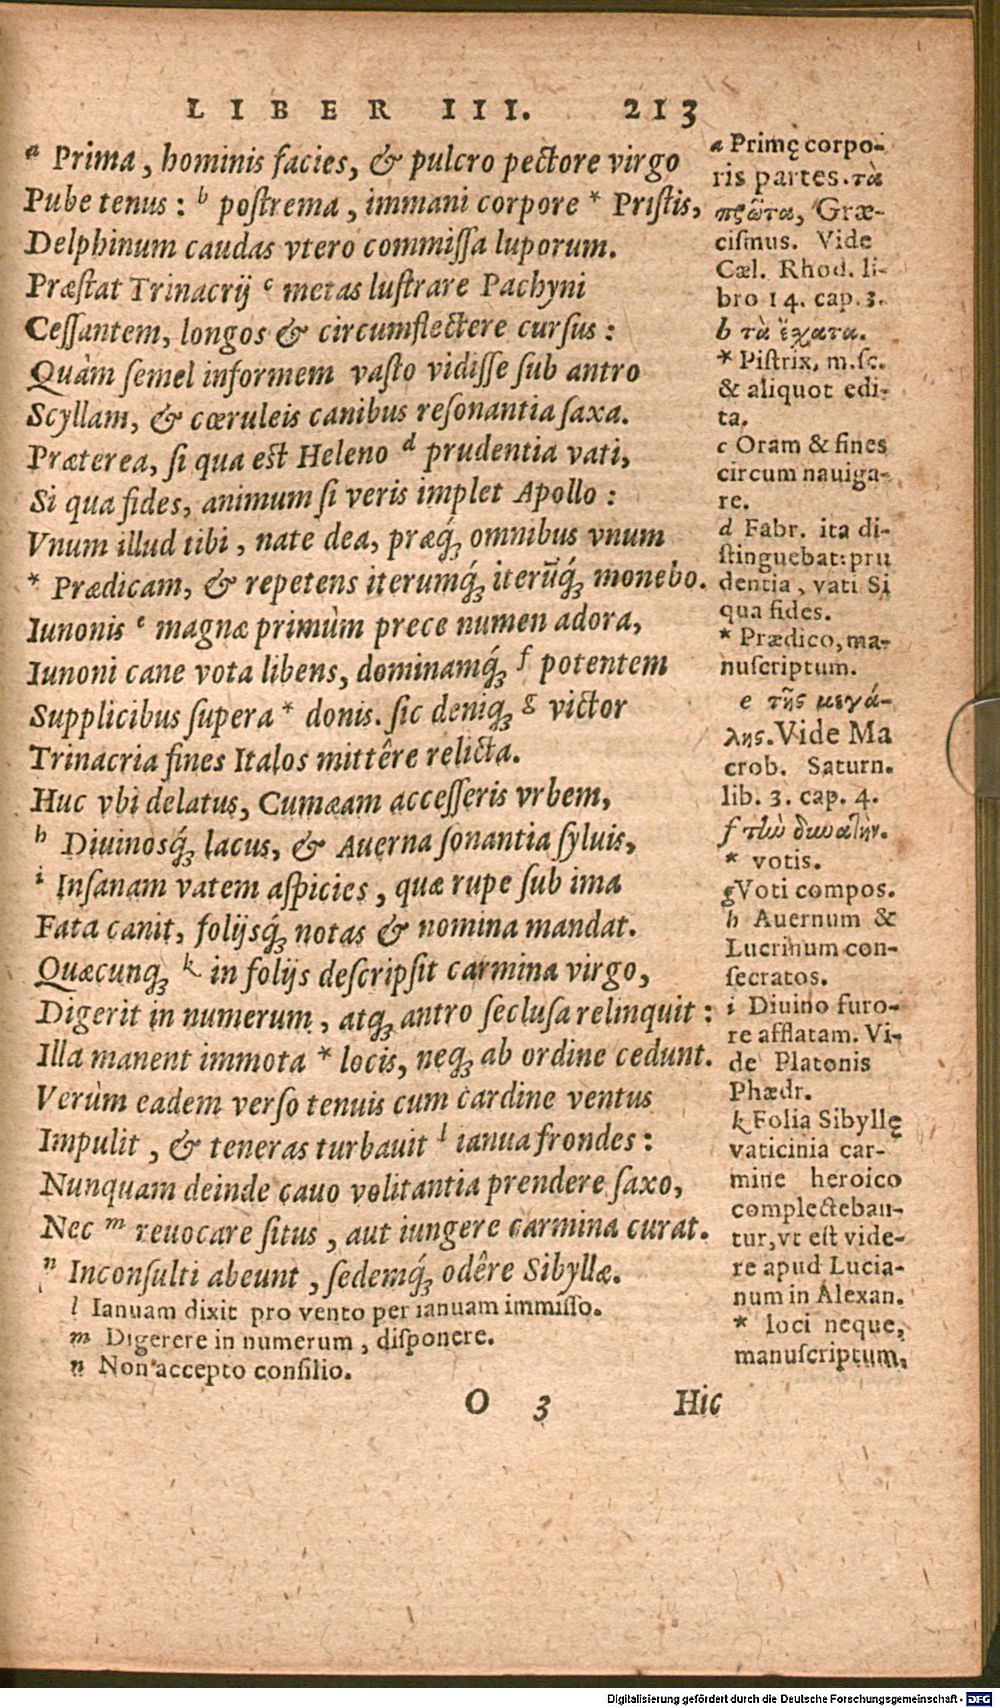 LIBER III. 213
a Prima, hominis facies, & pulcro pectore virgo
Pube tenus: b postrema, immani corpore * Pristis,
Delphinum caudas vtero commissa luporum.
Præstat Trinacrij c metas lustrare Pachyni
Cessantem, longos & circumflectere cursus:
Quàm semel informem vasto vidisse sub antro
Scyllam, & cœruleis canibus resonantia saxa.
Præterea, si qua est Heleno d prudentia vati,
Si qua fides, animum si veris implet Apollo:
Vnum illud tibi, nate dea, præq́; omnibus vnum
* Prædicam, & repetens iterumq́; iterũq́; monebo.
Iunonis e magnæ primùm prece numen adora,
Iunoni cane vota libens, dominamq́; f potentem
Supplicibus supera * donis. sic deniq; g victor
Trinacria fines Italos mittêre relicta.
Huc vbi delatus, Cumæam accesseris vrbem,
h Diuinosq́; lacus, & Auerna sonantia syluis,
i Insanam vatem aspicies, quæ rupe sub ima
Fata canit, folijsq́; notas & nomina mandat.
Quæcunq; k in folijs descripsit carmina virgo,
Digerit in numerum, atq; antro seclusa relinquit:
Illa manent immota * locis, neq; ab ordine cedunt.
Verùm eadem verso tenuis cum cardine ventus
Impulit, & teneras turbauit l ianua frondes:
Nunquam deinde cauo volitantia prendere saxo,
Nec m reuocare situs, aut iungere carmina curat.
n Inconsulti abeunt, sedemq́; odêre Sibyllæ.
l Ianuam dixit pro vento per ianuam immisso.
m Digerere in numerum, disponere.
n Non accepto consilio.
a Primę corpo-
ris partes. τὰ
πρῶτα, Græ-
cismus. Vide
Cæl. Rhod. li-
bro 14. cap. 3.
b τὰ ἔχατα.
* Pistrix, m. sc.
& aliquot edi-
ta.
c Oram & fines
circum nauiga-
re.
d Fabr. ita di-
stinguebat: pru
dentia, vati Si
qua fides.
* Prædico, ma-
nuscriptum.
e τῆς μεγά-
λης. Vide Ma
crob. Saturn.
lib. 3. cap. 4.
f τὼ δυνατὴν.
* votis.
g Voti compos.
h Auernum &
Lucrinum con-
secratos.
i Diuino furo-
re afflatam. Vi-
de Platonis
Phædr.
k Folia Sibyllę
vaticinia car-
mine heroico
complecteban-
tur, vt est vide-
re apud Lucia-
num in Alexan.
* loci neque,
manuscriptum,
O 3 Hic
Digitalisierung gefördert durch die Deutsche Forschungsgemeinschaft - DFG